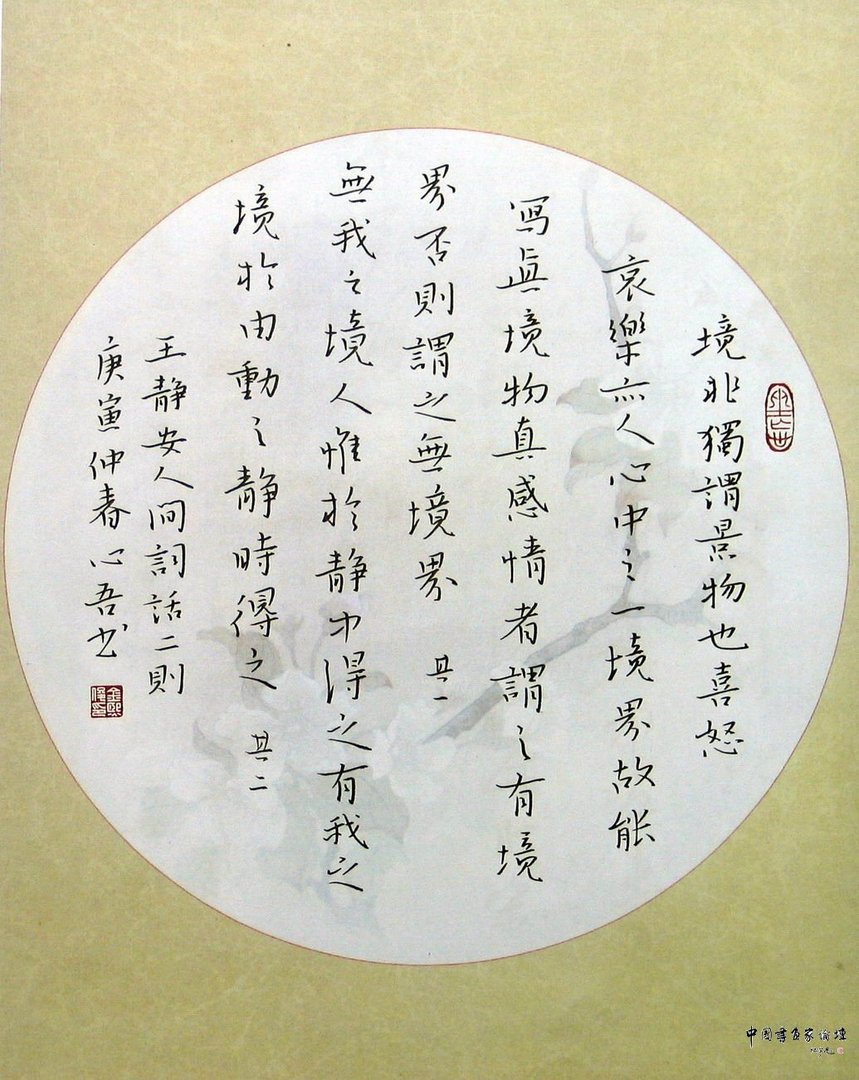 境非獨謂景物也喜怒
哀樂亦人心中之一境界故能
寫真境物真感情者謂之有境
界否則謂之無境界 其一
無我之境人惟於静中得之有我之
境於由動之静時得之 其二
王静安人间詞話二則
庚寅仲春心吾书
中国書画家論壇